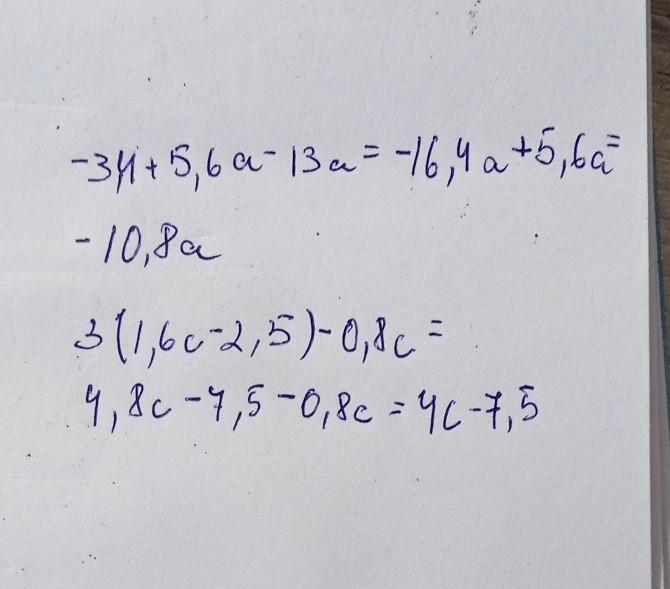 -34+5,6a-13a=-16,4a+5,6a=
-10,8a
3(1,6c-2,5)-0,8c=
4,8c-7,5-0,8c=4c-7,5